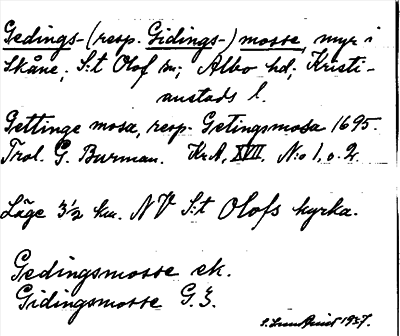 Gedings- (resp. Gidings-) mosse, myr i
Skåne; S:t Olof sn; Albo hd; Kristi-
anstads l.
Gettinge mosa, resp. Getingsmosa 1695.
Trol. G. Burman. Kr.A, XVII, N:o 1, o. 2.
Läge 3 1/2 km. NV S:t Olofs kyrka.
Gedingsmosse ek.
Gidingsmosse G.S.
1937.